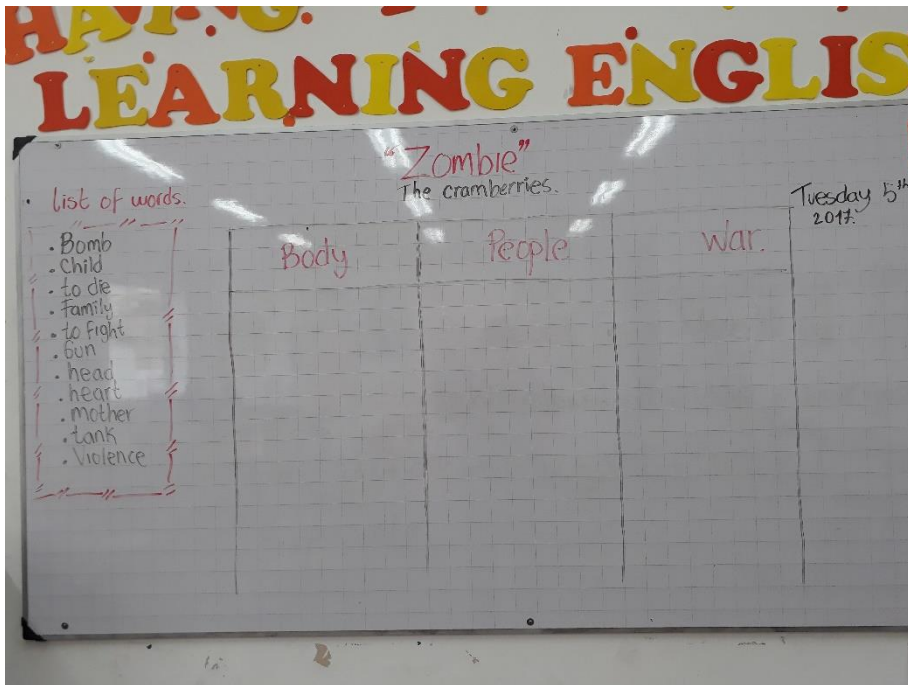 HAVING
LEARNING ENGLIS
"Zombie"
The cramberries.
Tuesday 5th
2017.
. list of words.
. Bomb
. Child
. to die
. Family
. to fight
. Gun
. head
. heart
. mother
. tank
. Violence
Body People War.